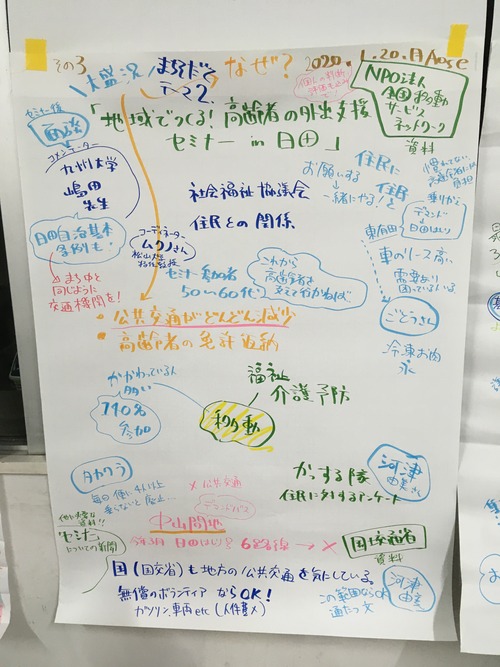 その3
大盛況
まるだで
テーマ2.
なぜ?
2020.1.20.月
NPO法人
全国移動
サービス
ネットワーク
資料
「地域でつくる!高齢者の外出支援
セミナー in 日田」
セミナー後
面談
コメンテーター
九州大学
嶋田
先生
日田自治基本
条例も!
→まちゅと
同じように
交通機関を!
社会福祉協議会
住民との関係
コーディネーター
松山大学
セミナー参加者
50〜60代
これから
高齢者を
支えて行かねば
お願いする
住民に
一緒にやる!
住民と
乗り合い
デマンド
日田はしり
車有田
車のリース高い
需要より
困っている
ごとうさん
冷凍お肉
氷
・公共交通がどんどん減少
・高齢者の免許返納
かかわっている人
多い
710名
参加
移動
福祉
介護予防
タカクラ
毎回働4人以上
乗らないと廃止…
×公共交通
デマンドバス
中山間地
今3月 日田はしり号 6路線→×
かっする隊
住民に対するアンケート
河津
由美さん
国交通省
資料
他に大変な
資料!!
セミナー
についての新聞
国(国交省)も地方の公共交通を気にしている。
無償のボランティアならOK!
ガソリン、車両etc(人件費×)
この範囲ならOK
通たつ文
河津
由美